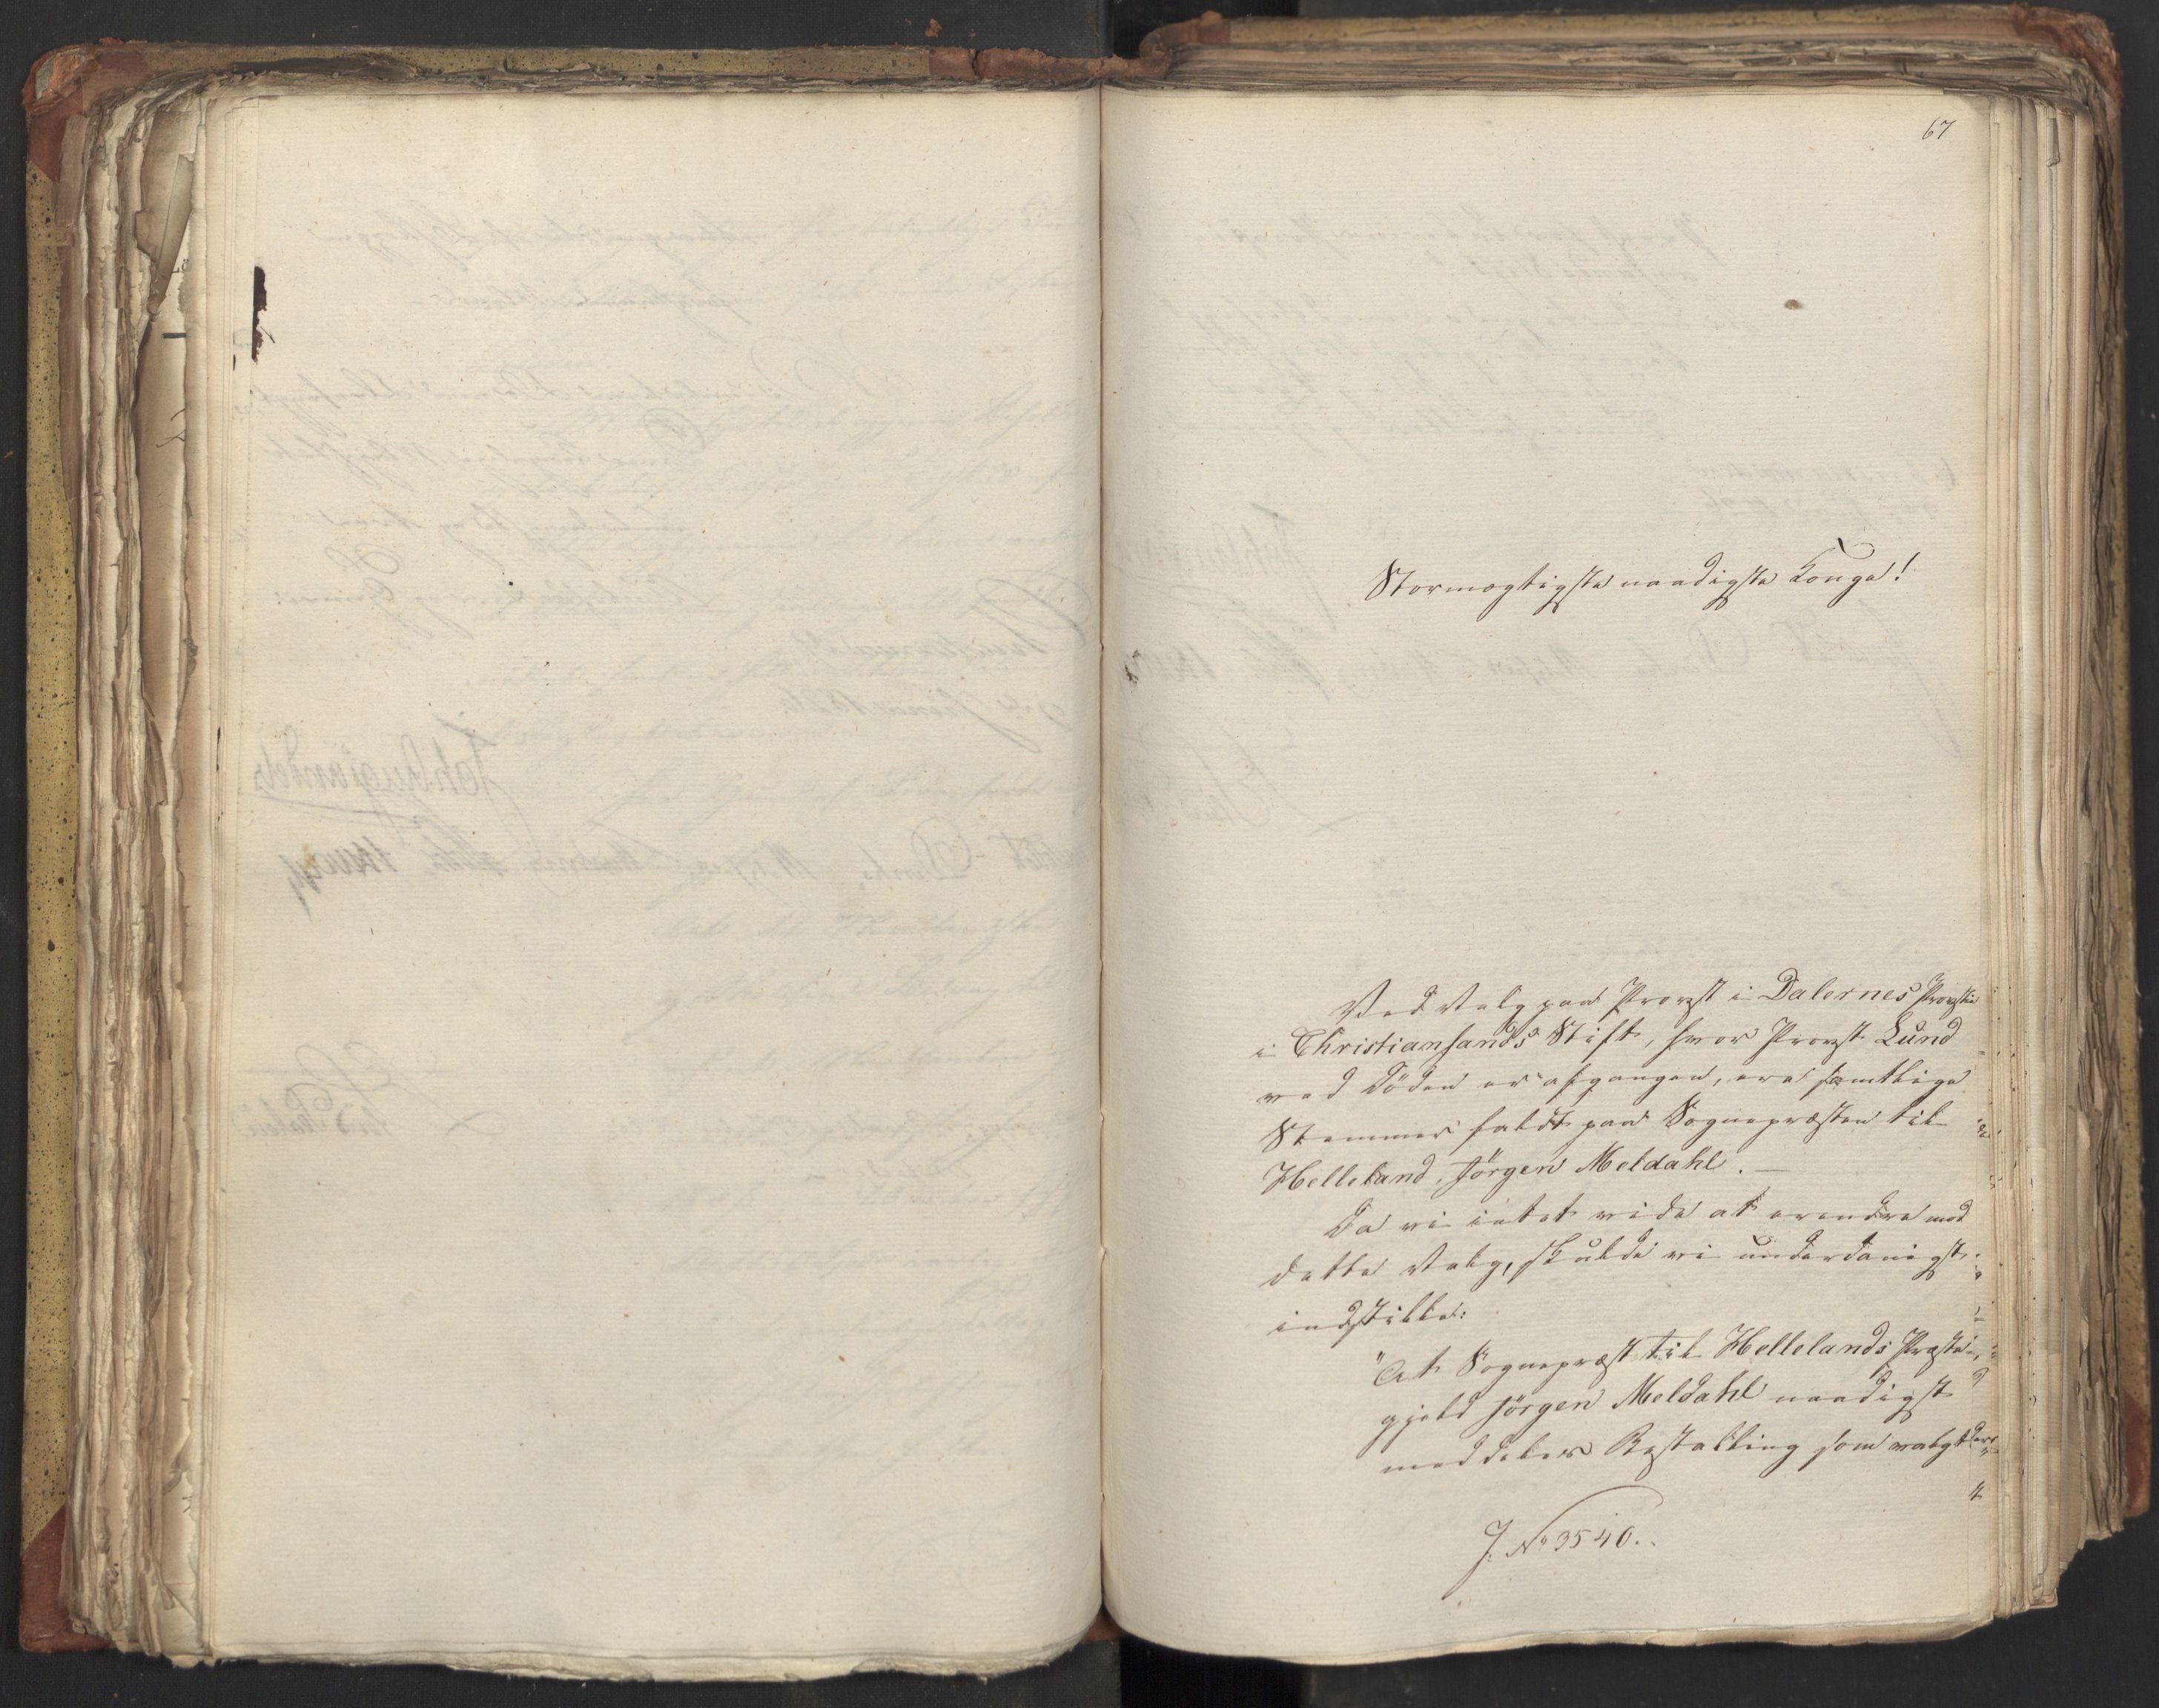 67
Stormægtigste naadigste Konge!
Ved Valg paa Provst i Dalernes Provstie
i Christiansands Stift, hvor Provst Lund
ved Døden er afgangen, ere samtlige
Stemmer faldt paa Sognepræsten til
Helleland, Jörgen Meldahl. —
Da vi intet vide at erindre mod
dette Valg, skulde vi underdanigst
indstille:
"At Sognepræst til Hellelands Præste-
gjeld Jörgen Meldahl naadigst
meddeles Bestalling som valgt
J. No 3540.